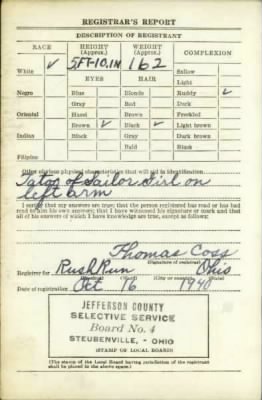 REGISTRAR'S REPORT
DESCRIPTION OF REGISTRANT
RACE HEIGHT (Approx.) WEIGHT (Approx.) COMPLEXION
White ✓ 5FT-10.IN 162 Sallow
EYES HAIR Light
Negro Blue Blonde Ruddy ✓
Gray Red Dark
Oriental Hazel Brown Freckled
Brown ✓ Black ✓ Light brown
Indian Black Gray Dark brown
Bald Black
Filipino
Other obvious physical characteristics that will aid in identification
Tatoo of Sailor Girl on
left arm
I certify that my answers are true; that the person registered has read or has had
read to him his own answers; that I have witnessed his signature or mark and that
all of his answers of which I have knowledge are true, except as follows:
Thomas Coss
(Signature of registrar)
Registrar for Rush Run Ohio
(City or county)
Date of registration Oct 16 1940
JEFFERSON COUNTY
SELECTIVE SERVICE
Board No. 4
STEUBENVILLE, - OHIO
(STAMP OF LOCAL BOARD)
(The stamp of the Local Board having jurisdiction of the registrant
shall be placed in the above space.)